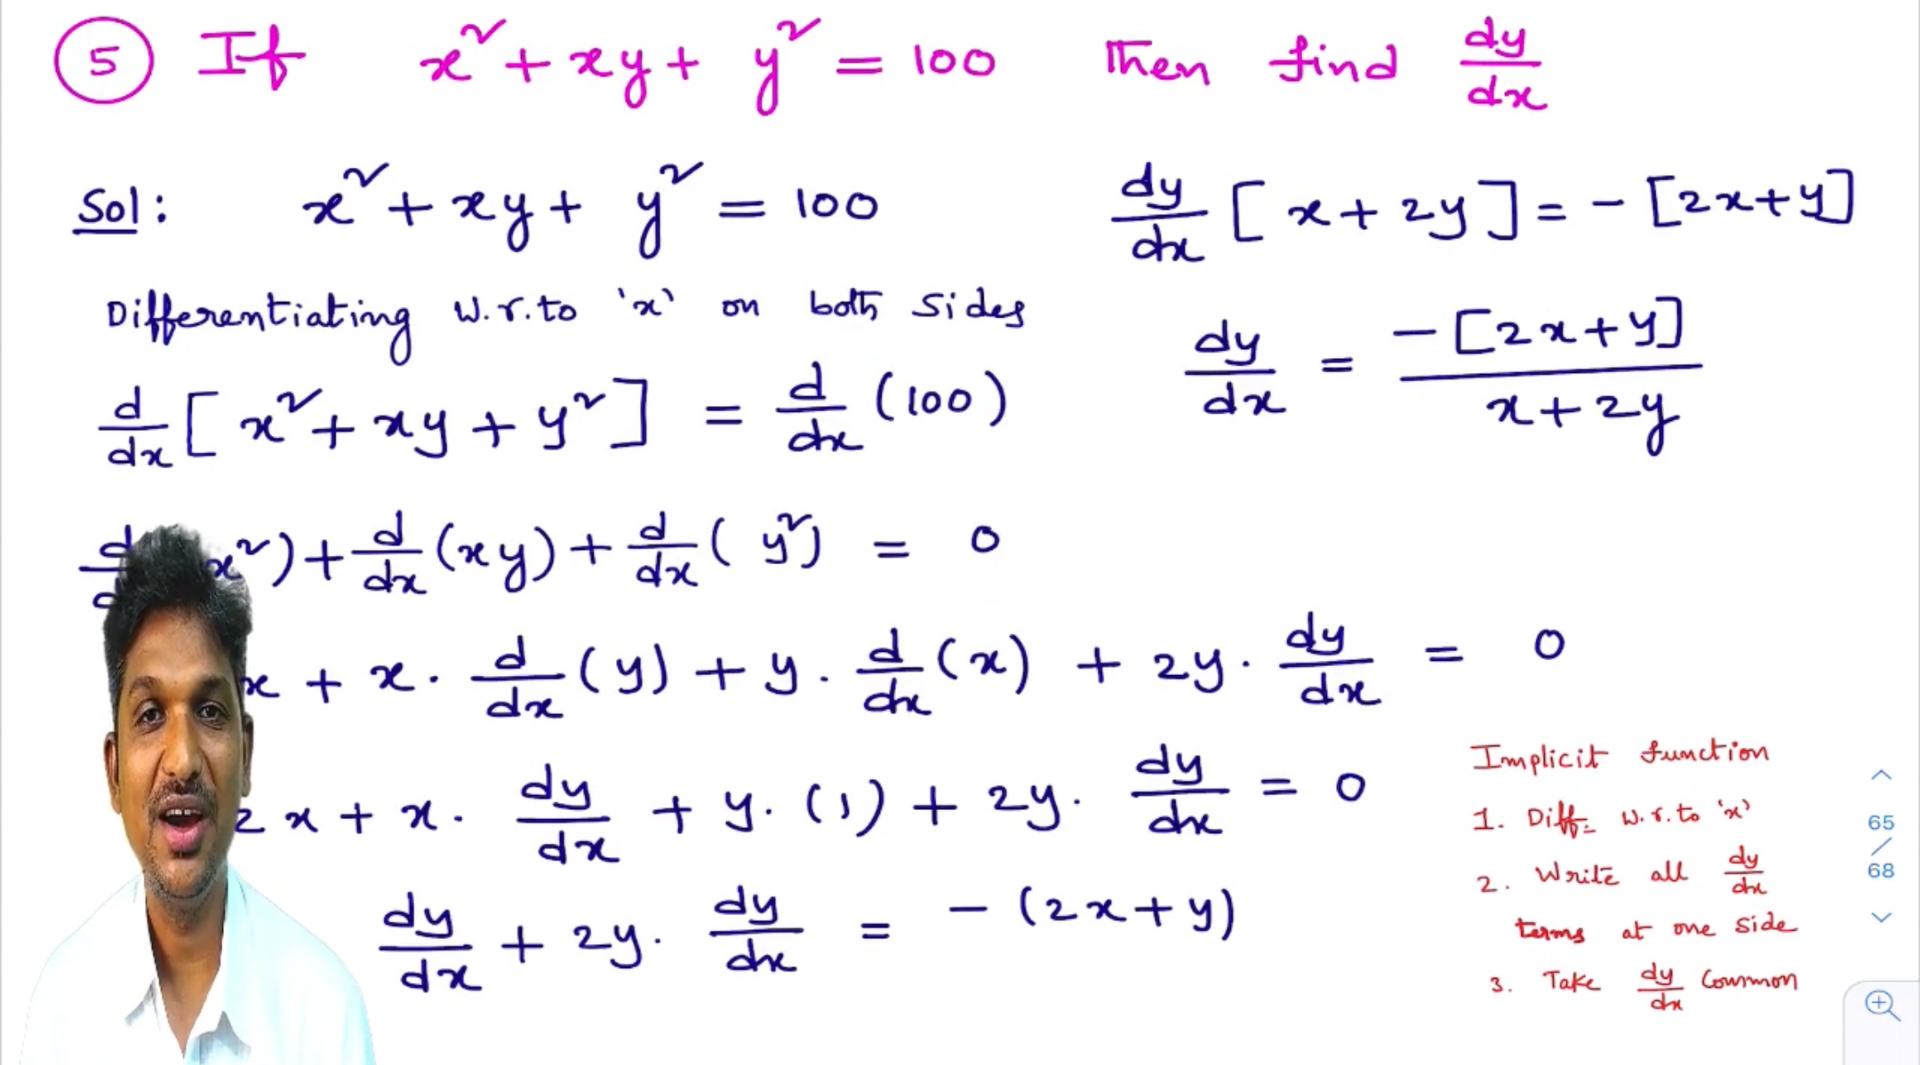 5 If x² + xy + y² = 100 Then find dy/dx
Sol: x² + xy + y² = 100
Differentiating w.r.to 'x' on both sides
d/dx [x² + xy + y²] = d/dx (100)
x²) + d/dx (xy) + d/dx (y²) = 0
x + x · d/dx (y) + y · d/dx (x) + 2y · dy/dx = 0
2x + x · dy/dx + y · (1) + 2y · dy/dx = 0
dy/dx + 2y · dy/dx = - (2x + y)
dy/dx [x + 2y] = - [2x + y]
dy/dx = -[2x + y] / x + 2y
Implicit function
1. Diff= w.r.to 'x'
2. Write all dy/dx
terms at one side
3. Take dy/dx Common
65
/
68